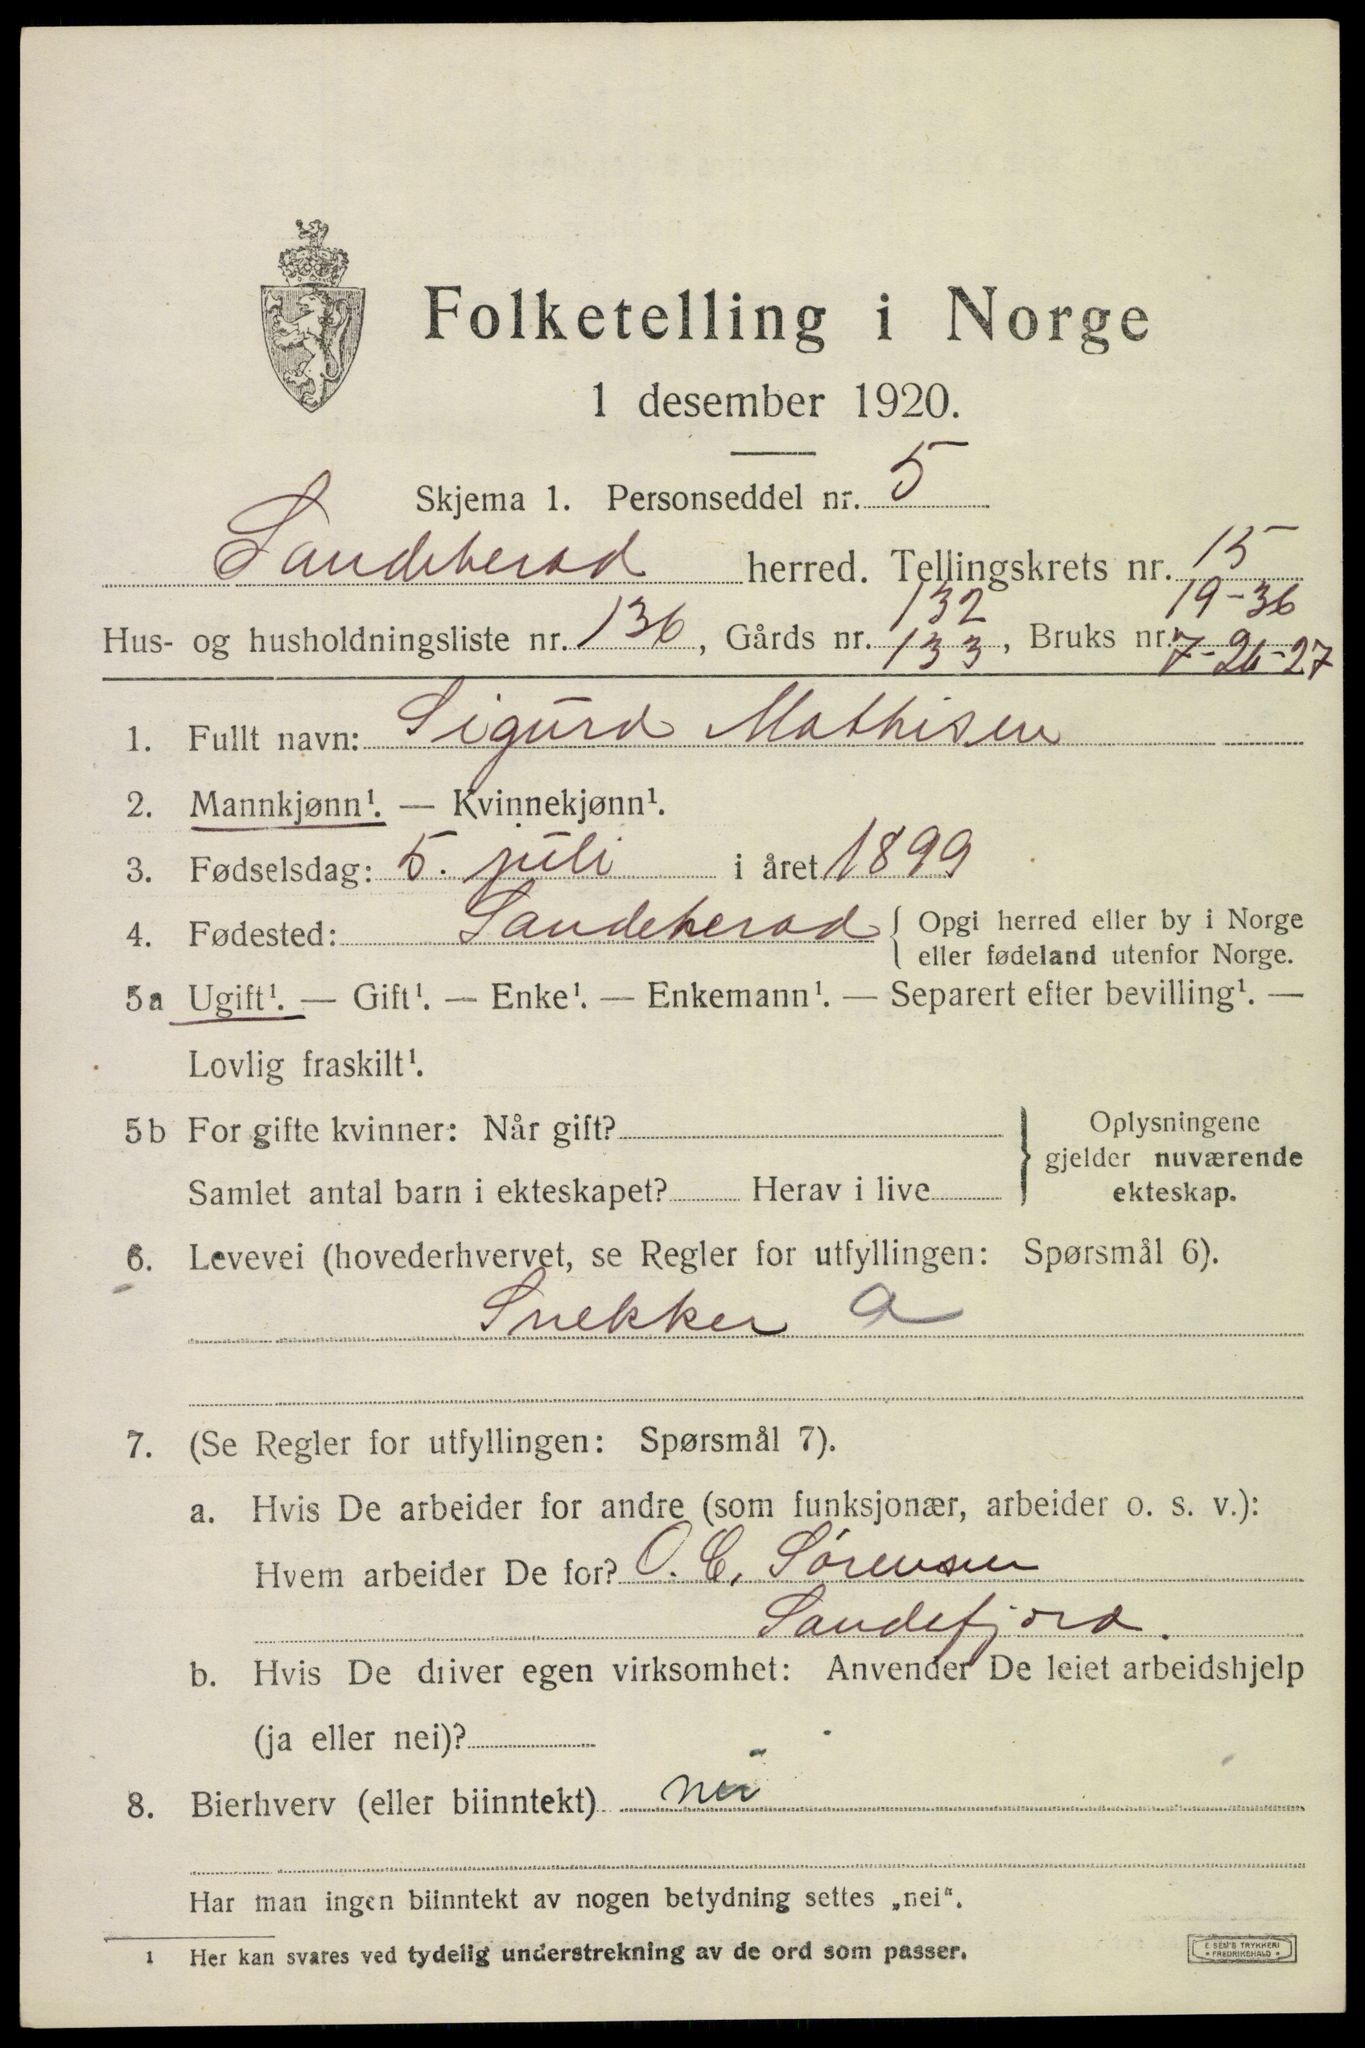 Folketelling i Norge
1 desember 1920.
Skjema 1. Personseddel nr. 5
Sandeherad herred. Tellingskrets nr. 15
132 19-36
Hus- og husholdningsliste nr. 136, Gårds nr. 133, Bruks nr. 7-26-27
1. Fullt navn: Sigurd Mathisen
2. Mannkjønn¹. — Kvinnekjønn¹.
3. Fødselsdag: 5. juli i året 1899
4. Fødested: Sandeherad { Opgi herred eller by i Norge
eller fødeland utenfor Norge.
5a Ugift¹. — Gift¹. — Enke¹. — Enkemann¹. — Separert efter bevilling¹. —
Lovlig fraskilt¹.
5b For gifte kvinner: Når gift? } Oplysningene
gjelder nuværende
Samlet antal barn i ekteskapet? Herav i live ekteskap.
6. Levevei (hovederhvervet, se Regler for utfyllingen: Spørsmål 6).
Snekker a
7. (Se Regler for utfyllingen: Spørsmål 7).
a. Hvis De arbeider for andre (som funksjonær, arbeider o. s. v.):
Hvem arbeider De for? O. C. Sørensen
Sandefjord.
b. Hvis De driver egen virksomhet: Anvender De leiet arbeidshjelp
(ja eller nei)?
8. Bierhverv (eller biinntekt) nei
Har man ingen biinntekt av nogen betydning settes „nei“.
1 Her kan svares ved tydelig understrekning av de ord som passer.
E SEM'S TRYKKERI
• FREDRIKSHALD •